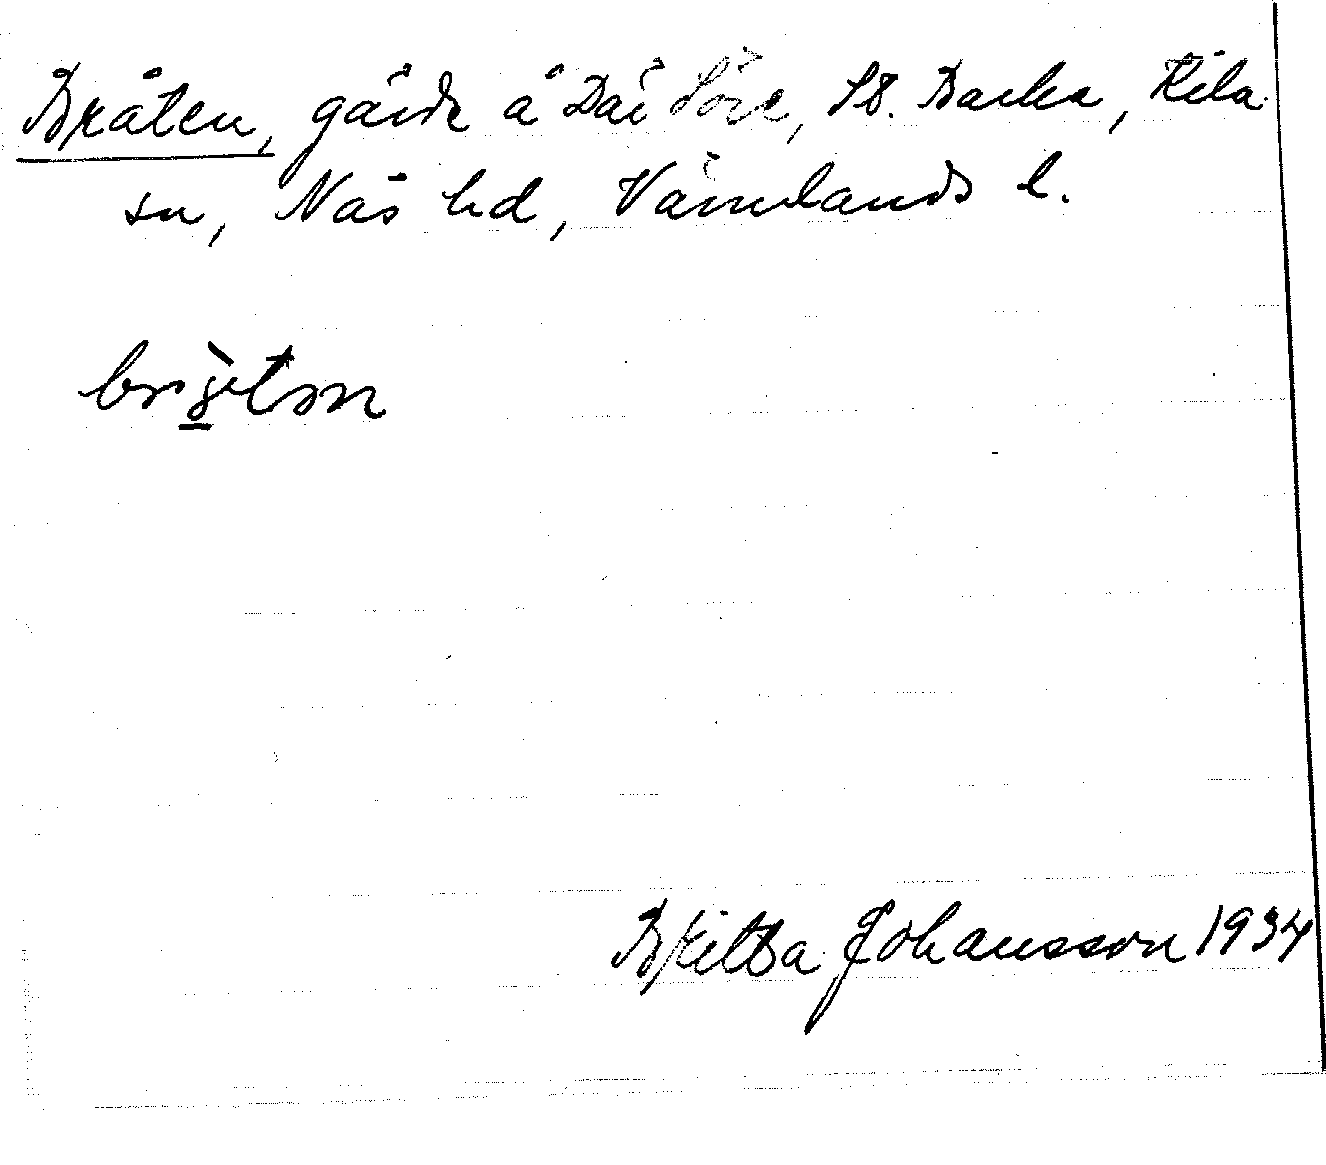 Bråten, gärde å Där Söre, St. Backa, Kila
sn, Näs hd, Värmlands l.
Britta Johansson 1934